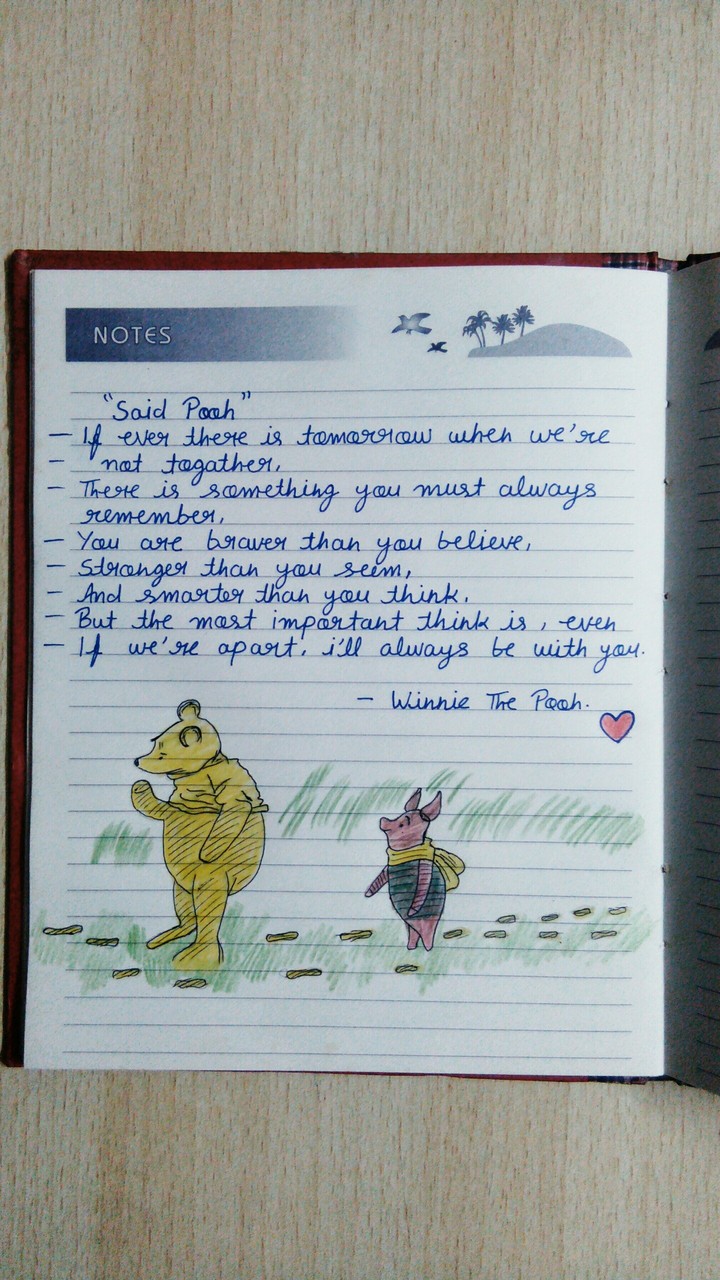 NOTES
"Said Pooh"
– If ever there is tomorrow when we're
– not togather,
– There is something you must always
remember,
– You are braver than you believe,
– Stronger than you seem,
– And smarter than you think.
– But the most important think is, even
– If we're apart. i'll always be with you.
– Winnie The Pooh.